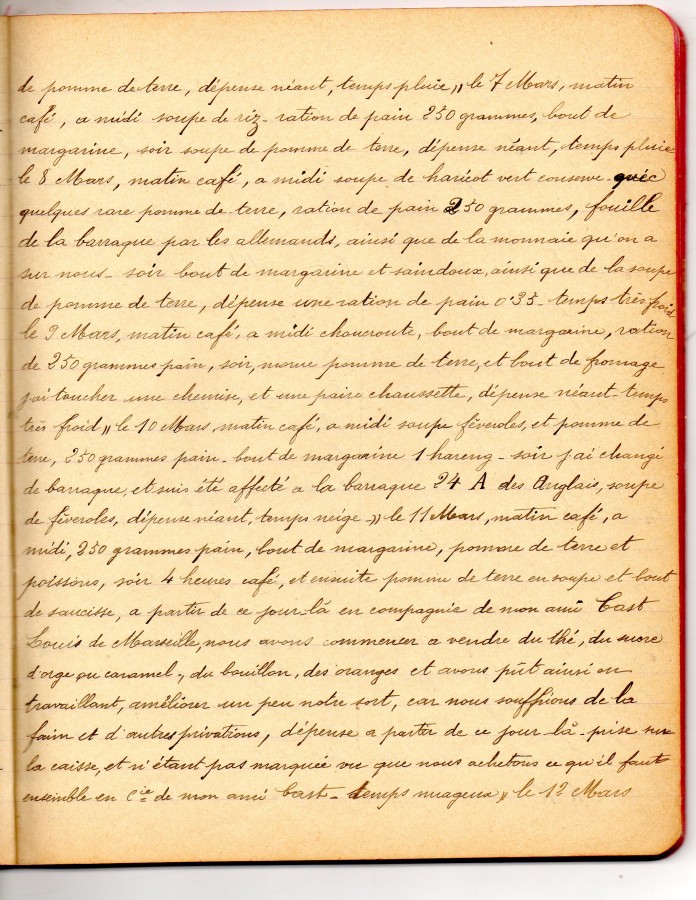 de pomme de terre, dépense néant, temps pluie,, le 7 Mars, matin
café, a midi soupe de riz - ration de pain 250 grammes, bout de
margarine, soir soupe de pomme de terre, dépense néant, temps pluie
le 8 Mars, matin café, a midi soupe de haricot vert conserve avec
quelques rare pomme de terre, ration de pain 250 grammes, fouille
de la barraque par les allemands, ainsi que de la monnaie qu'on a
sur nous - soir bout de margarine et saindoux, ainsi que de la soupe
de pomme de terre, dépense une ration de pain 0'35 - temps très froid
le 9 Mars, matin café, a midi choucroute, bout de margarine, ration
de 250 grammes pain, soir, morue pomme de terre, et bout de fromage
j'ai toucher une chemise, et une paire chaussette, dépense néant - temps
très froid,, le 10 Mars, matin café, a midi soupe féveroles, et pomme de
terre, 250 grammes pain - bout de margarine 1 hareng - soir j'ai changé
de barraque, et suis été affecté a la barraque 24 A des Anglais, soupe
de féveroles, dépense néant, temps neige -,, le 11 Mars, matin café, a
midi, 250 grammes pain, bout de margarine, pomme de terre et
poissons, soir 4 heures café, et ensuite pomme de terre en soupe et bout
de saucisse, a partir de ce jour-là en compagnie de mon ami Cast
Louis de Marseille, nous avons commencer a vendre du thé, du sucre
d'orge ou caramel -, du bouillon, des oranges et avons pût ainsi en
travaillant, améliorer un peu notre sort, car nous souffrions de la
faim et d'autres privations, dépense a partir de ce jour là - prise sur
la caisse, et n'étant pas marquée vu que nous achetons ce qu'il faut
ensemble en Cie de mon ami Cast - temps nuageux,, le 12 Mars